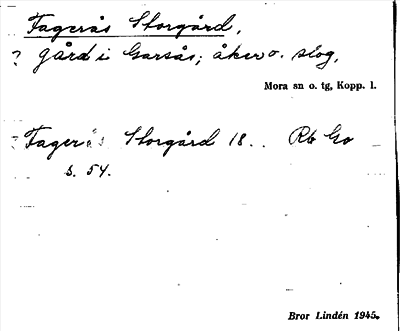 Fagerås Storgård,
? gård i Garsås; åker o. skog,
Mora sn o. tg, Kopp. l.
Fagerås Storgård 18.. Rb Go
s. 54.
Bror Lindén 1945.